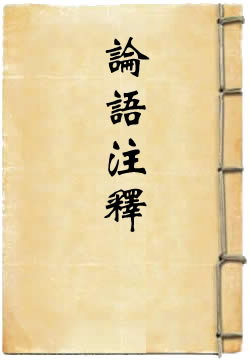 論語注釋